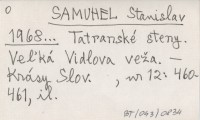 O
SAMUHEL Stanislav
1968... Tatranské steny.
Veľká Vidlova veža. —
Krásy Slov. , nr 12: 460-
461, il.
BT/043/0234